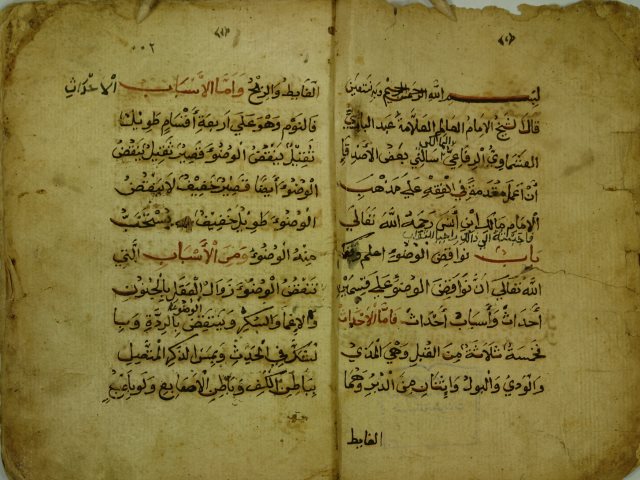 بسم الله الرحمن الرحيم وبه نستعين
قال الشيخ الامام العالم العلامة عبد الباري
العشماوي الرفاعي المالكي سألني بعض الأصدقا
أن أعمل مقدمة في الفقه على مذهب
الإمام مالك ابن أنس رحمه الله تعالى
فاجبته الى ذلك راجيا للثواب
باب نواقض الوضوء اعلم وفقك
الله تعالى أن نواقض الوضوء على قسمين
أحداث وأسباب أحداث فأما الأحداث
فخمسة ثلاثة من القبل وهي المذي
والودي والبول وإثنان من الدبر وهما
الغايط
٠٠٢
الغايط والريح وأما الأسباب الاحداث
فالنوم وهو على أربعة أقسام طويل
ثقيل ينقض الوضوء قصير ثقيل ينقض
الوضوء أيضا قصير خفيف لا ينقض
الوضوء طويل خفيف يستحب
منه الوضوء ومن الأسباب التي
تنقض الوضوء زوال العقل بالجنون
والإغما والسكر وينتقض الوضوء بالردة وبا
لشك في الحدث وبمس الذكر المتصل
بباطن الكف وباطن الأصابع ولو بإصبع